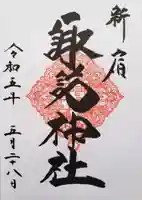 新宿
諏訪神社
令和五年
五月二十八日